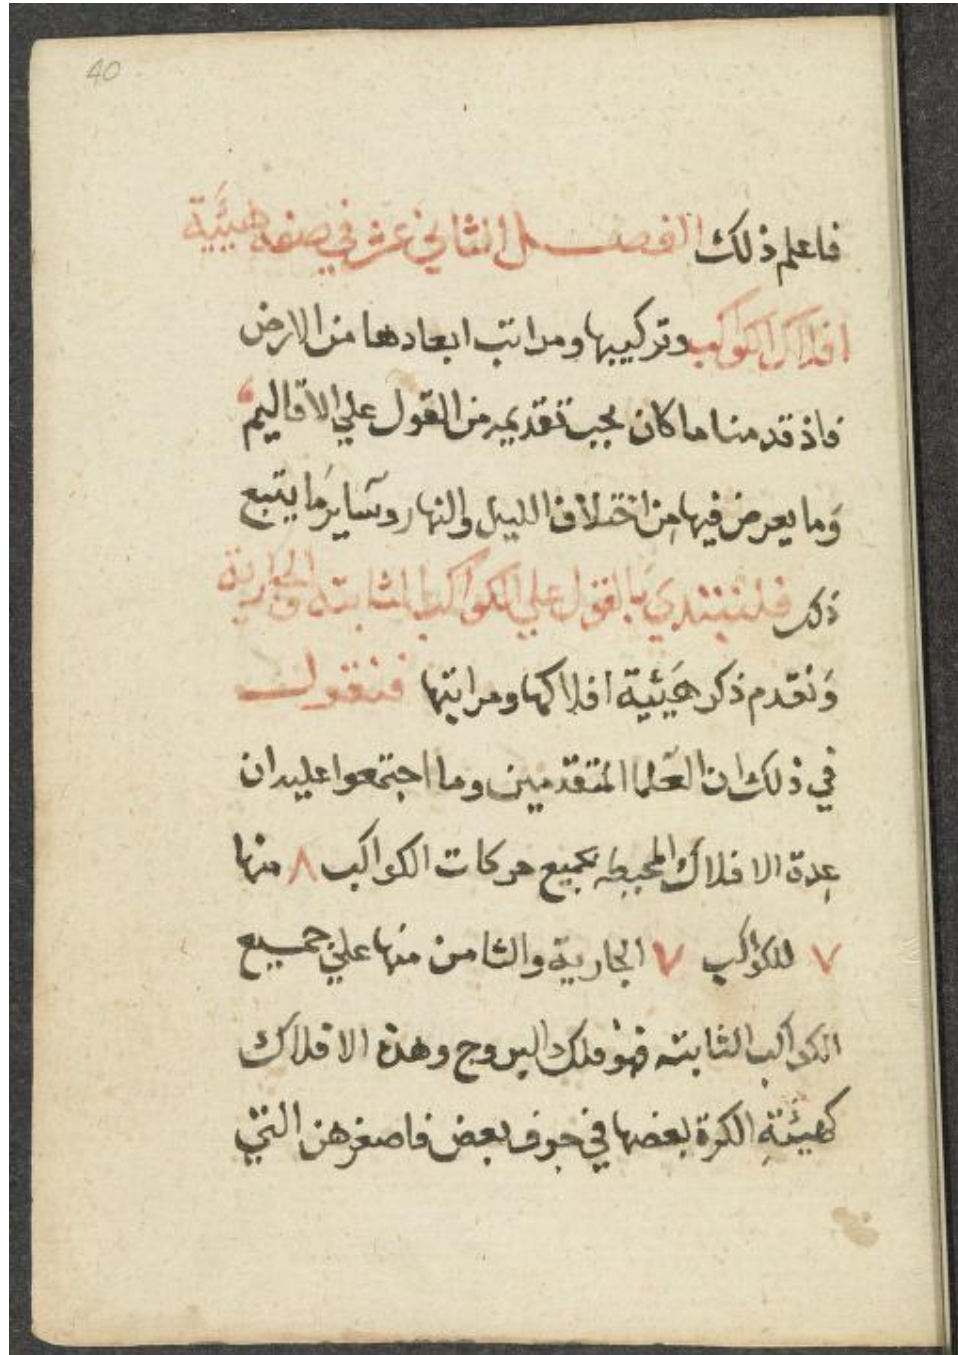 40
فاعلم ذلك الفصل الثاني عشر في صفة هيئية
افلاك الكواكب وتركيبها ومراتب ابعادها من الارض
فاذ قدمنا ما كان يجب تقديمه من القول علي الاقاليم
وَما يعرض فيها مِن اختلاف الليل والنهار وسَاير مَا يتبع
ذلك فلنبتدي بالقول علي الكواكب الثابته والجارية
وَنقدم ذكر هَيئية افلاكها ومراتبها فنقول
في ذلك ان العَلما المتقدمين وما اجتمعوا عليه ان
عِدة الافلاك المحيطه بجميع حركات الكواكب ٨ منها
٧ للكواكب ٧ الجارية والثامن منها علي جميع
الكواكب الثابته فهو فلك البروج وهذه الافلاك
كهيئةِ الكرة بعضها في جوف بعض فاصغرهن التي